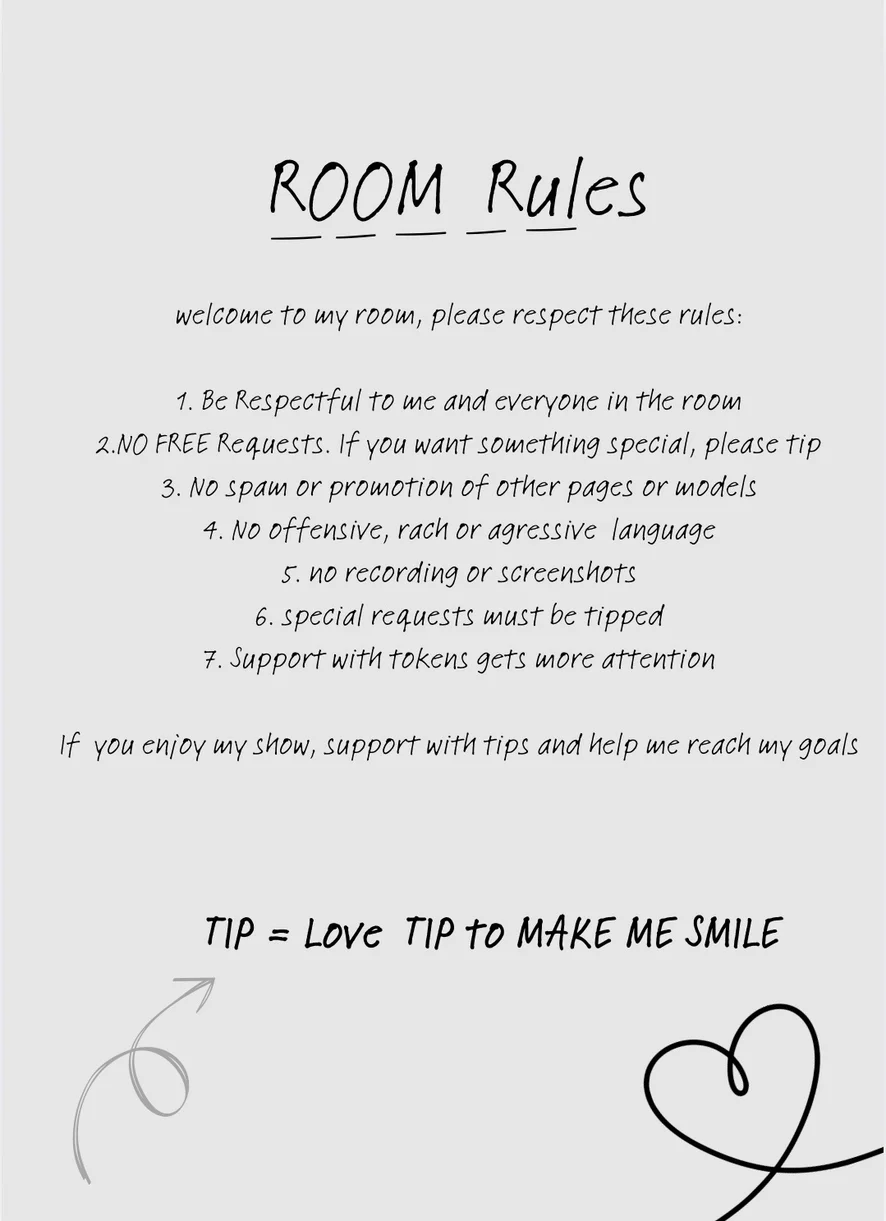 ROOM Rules
welcome to my room, please respect these rules:
1. Be Respectful to me and everyone in the room
2.NO FREE Requests. If you want something special, please tip
3. No spam or promotion of other pages or models
4. No offensive, rach or agressive language
5. no recording or screenshots
6. special requests must be tipped
7. Support with tokens gets more attention
If you enjoy my show, support with tips and help me reach my goals
TIP = Love TIP to MAKE ME SMILE